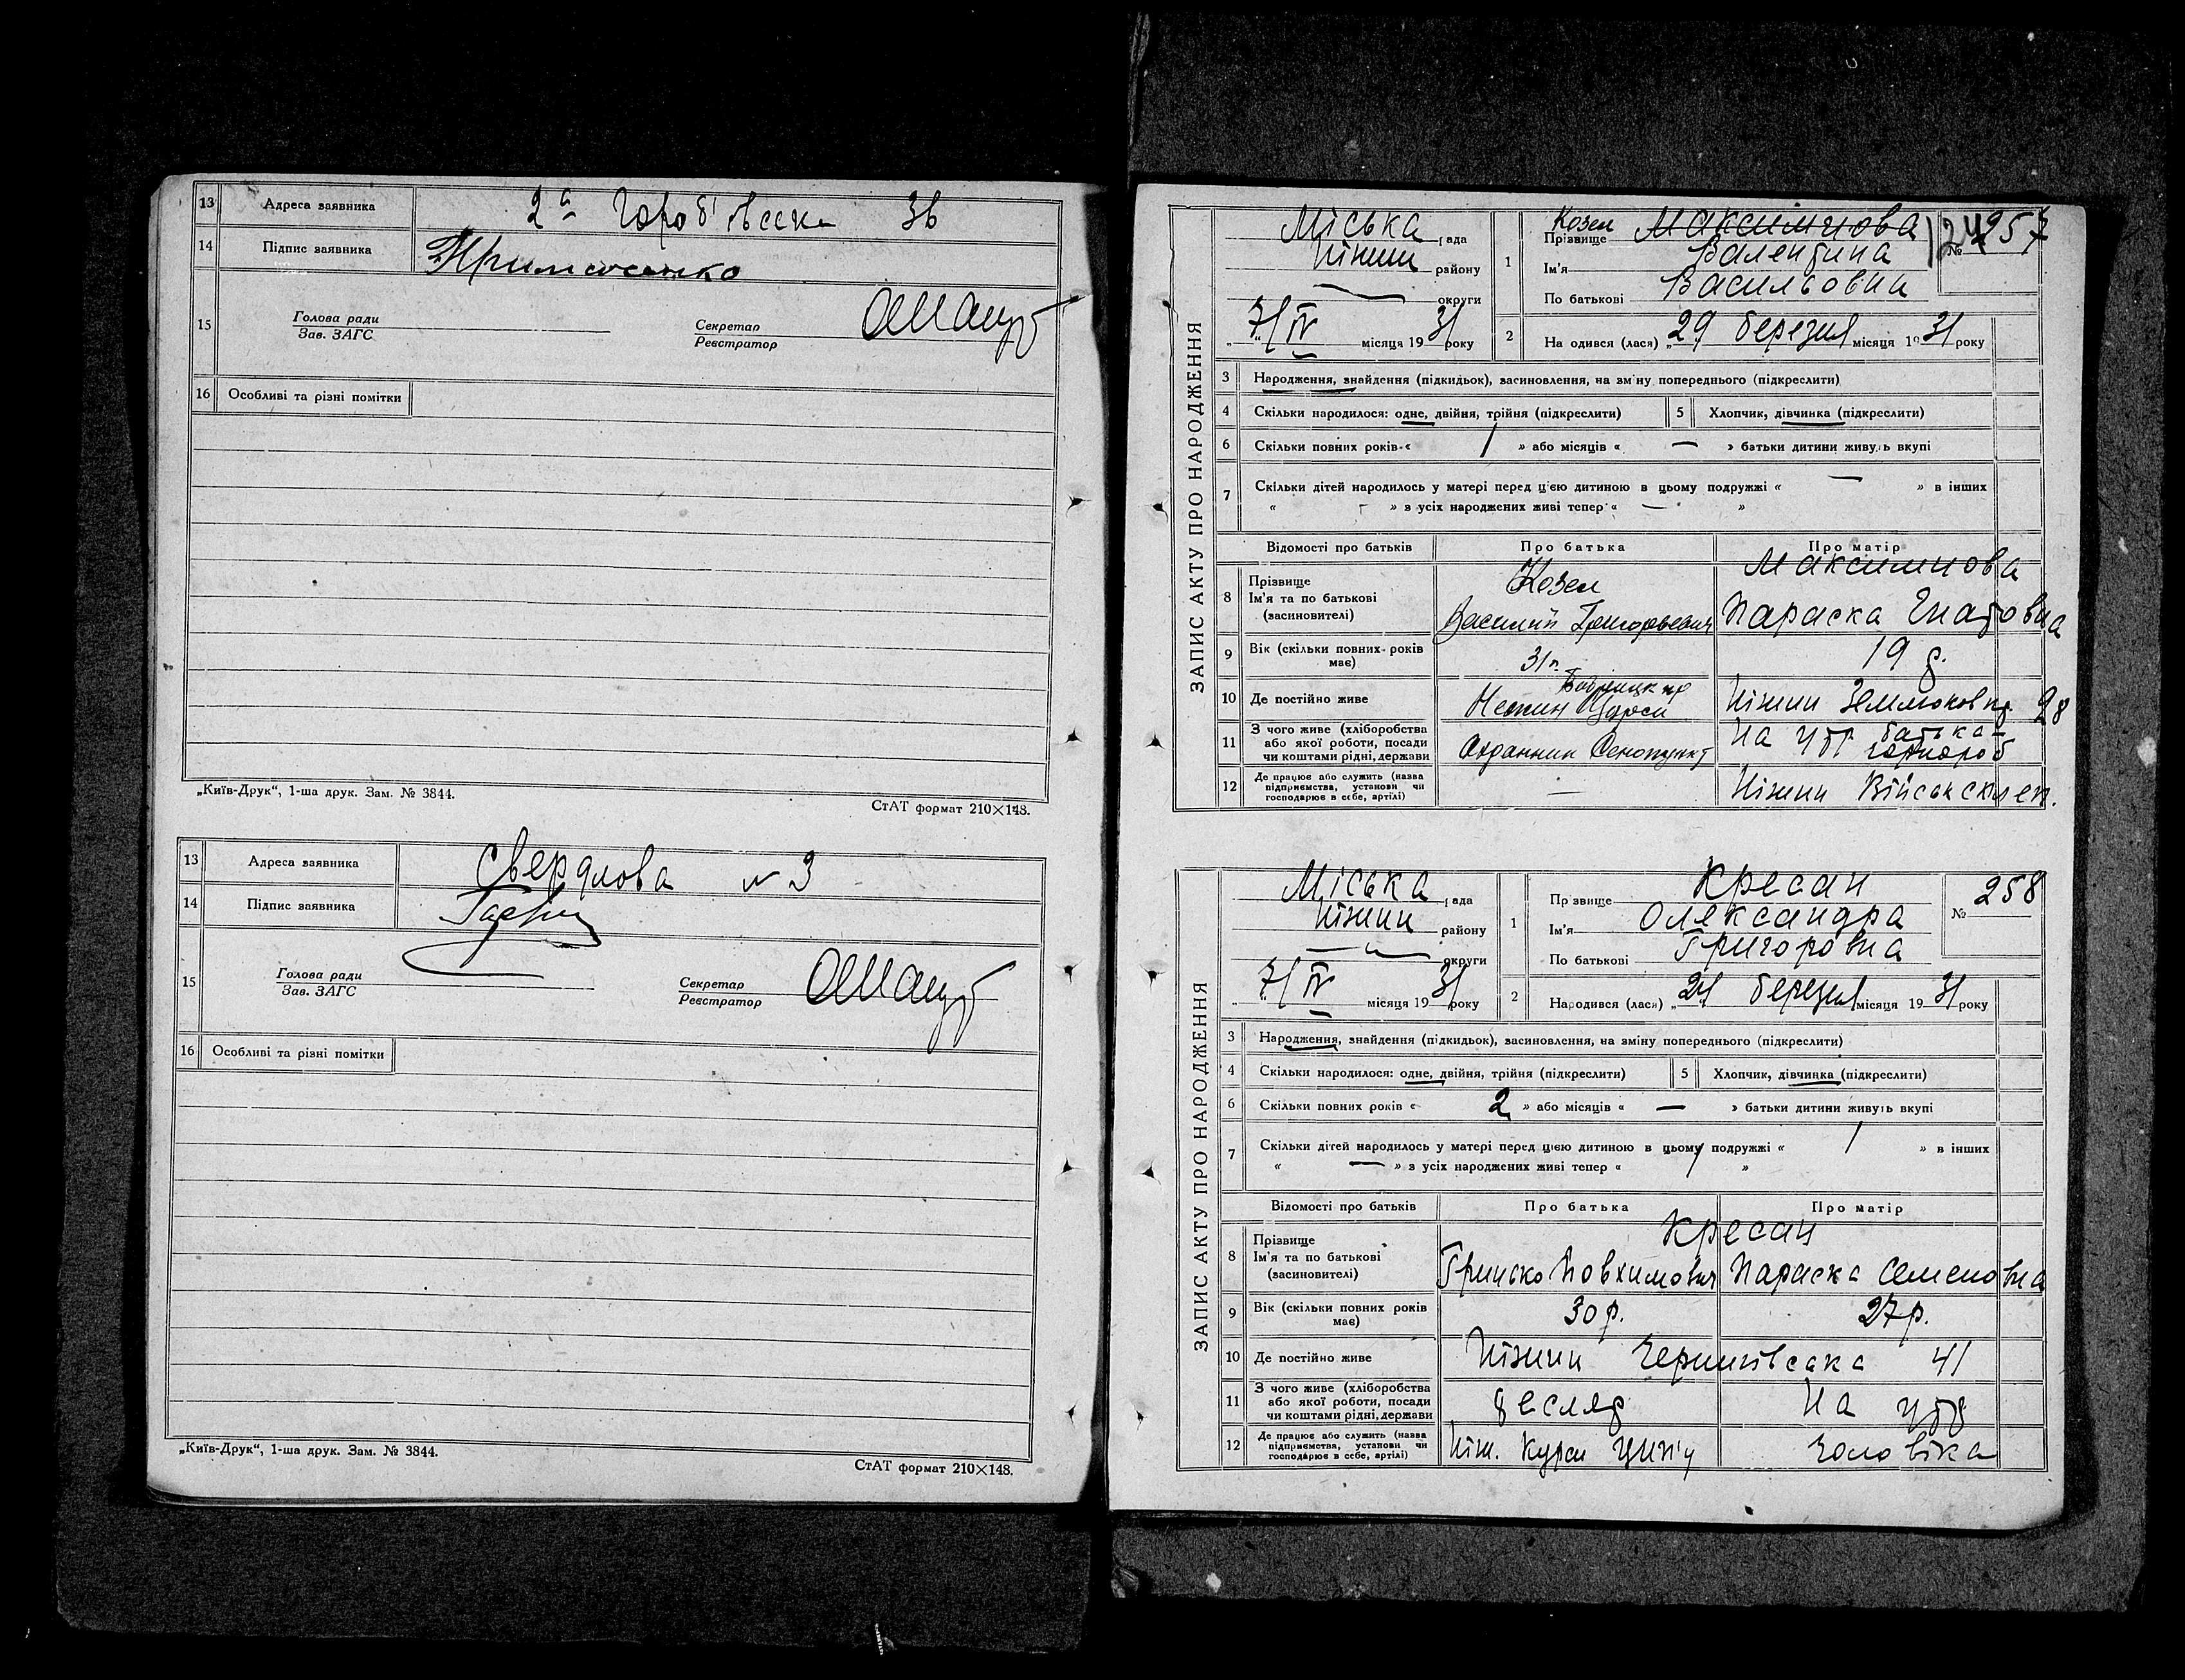 13 Адреса заявника 2а 3в
14 Підпис заявника
15 Голова ради Секретар
Зав. ЗАГС Реєстратор
16 Особливі та різні помітки
„Київ-Друк“, 1-ша друк. Зам. № 3844.
СтАТ формат 210×148.
13 Адреса заявника Свердлова № 3
14 Підпис заявника
15 Голова ради Секретар
Зав. ЗАГС Реєстратор
16 Особливі та різні помітки
„Київ-Друк“, 1-ша друк. Зам. № 3844.
СтАТ формат 210×148.
ЗАПИС АКТУ ПРО НАРОДЖЕННЯ
Міська рада
Ніжин району
округи
„7/IV“ місяця 1931 року
1 Прізвище Козел Максимчова № 257
Ім'я Валентина
По батькові Васильовна
2 На одився (лася) „29 березня місяця 1931 року
3 Народження, знайдення (підкидьок), засиновлення, на зміну попереднього (підкреслити)
4 Скільки народилося: одне, двійня, трійня (підкреслити) 5 Хлопчик, дівчинка (підкреслити)
6 Скільки повних років « 1 » або місяців « — » батьки дитини живуть вкупі
7 Скільки дітей народилось у матері перед цією дитиною в цьому подружжі « — » в інших
« — » з усіх народжених живі тепер « — »
Відомості про батьків Про батька Про матір
8 Прізвище Козел Максимнова
Ім'я та по батькові
(засиновителі) Василий Григорьевич Параска Гнатовна
9 Вік (скільки повних років має) 31 г. 19 р.
10 Де постійно живе Нежин Ніжин 28
11 З чого живе (хліборобства
або якої роботи, посади
чи коштами рідні, держави Охранник На утр. батька
12 Де працює або служить (назва
підприємства, установи чи
господарює в себе, артілі) — Ніжин
ЗАПИС АКТУ ПРО НАРОДЖЕННЯ
Міська рада
Ніжин району
округи
„7/IV“ місяця 1931 року
1 Прізвище Кресан № 258
Ім'я Олександра
По батькові Григоровна
2 Народився (лася) „24 березня місяця 1931 року
3 Народження, знайдення (підкидьок), засиновлення, на зміну попереднього (підкреслити)
4 Скільки народилося: одне, двійня, трійня (підкреслити) 5 Хлопчик, дівчинка (підкреслити)
6 Скільки повних років « 2 » або місяців « — » батьки дитини живуть вкупі
7 Скільки дітей народилось у матері перед цією дитиною в цьому подружжі « 1 » в інших
« — » з усіх народжених живі тепер « 1 »
Відомості про батьків Про батька Про матір
8 Прізвище Кресан
Ім'я та по батькові
(засиновителі) Грицько Параска Семеновна
9 Вік (скільки повних років має) 30 р. 27 р.
10 Де постійно живе Ніжин Чернигівська 41
11 З чого живе (хліборобства
або якої роботи, посади
чи коштами рідні, держави тесляр На утр
12 Де працює або служить (назва
підприємства, установи чи
господарює в себе, артілі) Ніж. Курси чоловіка